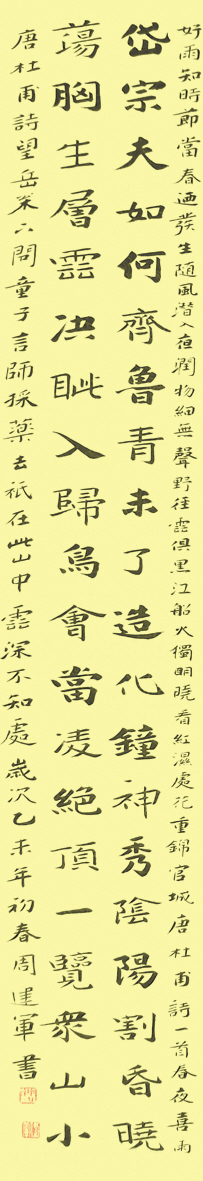 好雨知時節當春迺發生随風潛入夜潤物細無聲野徑雲俱黑江船火獨明曉看紅濕處花重錦官城唐杜甫詩一首春夜喜雨
岱宗夫如何齊魯青未了造化鐘神秀陰陽割昏曉
蕩胸生層雲决眦入歸鳥會當凌絕頂一覽衆山小
唐杜甫詩望岳案下問童子言師採藥去祇在此山中雲深不知處歲次乙未年初春周建軍書